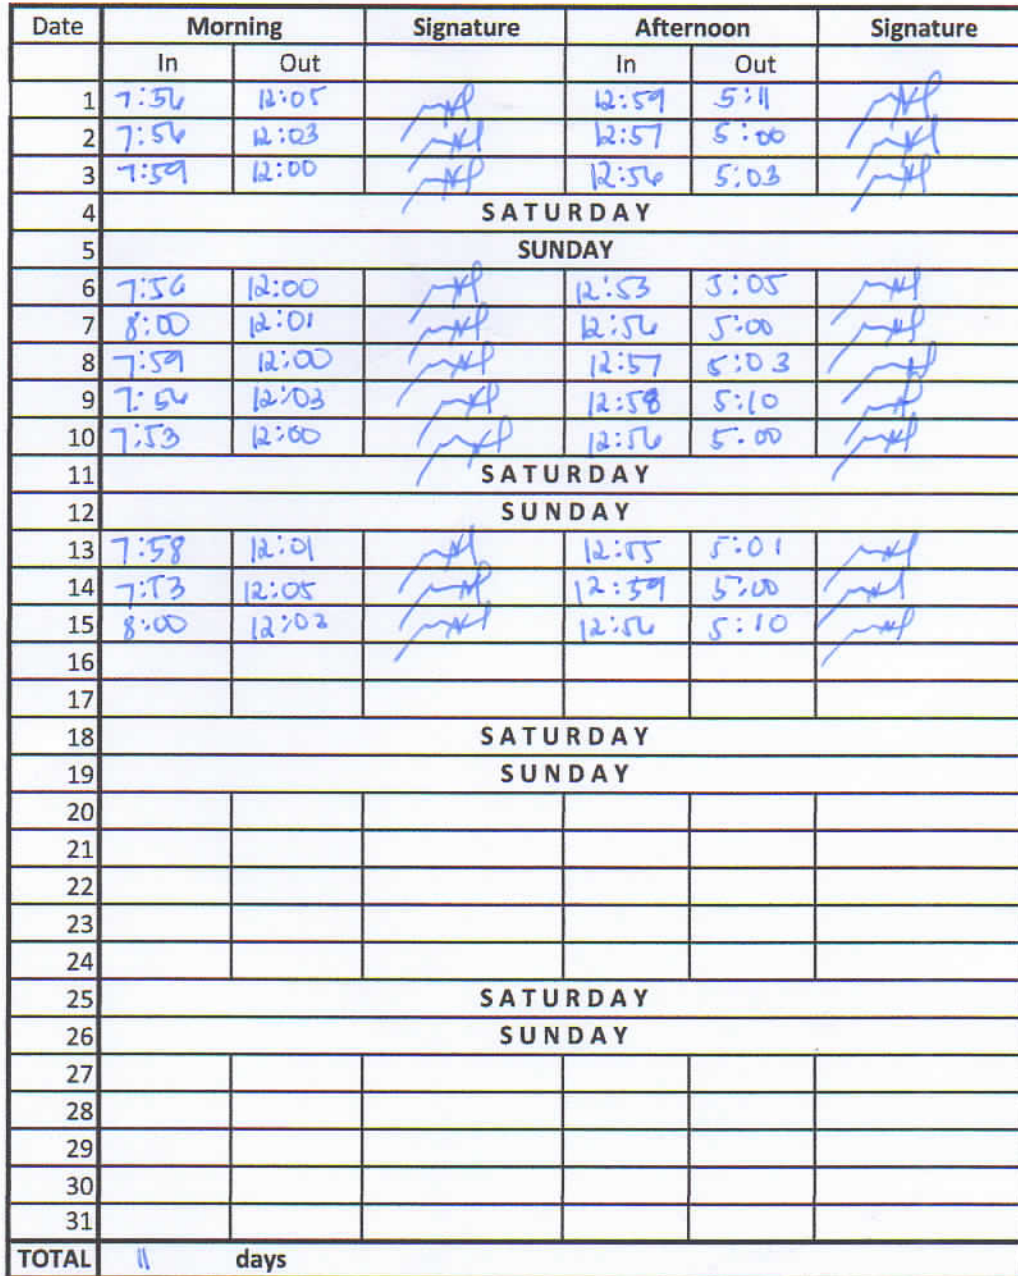 Date Morning Signature Afternoon Signature
In Out In Out
1 7:56 12:05 12:59 5:11
2 7:56 12:03 12:57 5:00
3 7:59 12:00 12:56 5:03
4 SATURDAY
5 SUNDAY
6 7:56 12:00 12:53 5:05
7 8:00 12:01 12:56 5:00
8 7:59 12:00 12:57 5:03
9 7:56 12:03 12:58 5:10
10 7:53 12:00 12:56 5:00
11 SATURDAY
12 SUNDAY
13 7:58 12:01 12:55 5:01
14 7:53 12:05 12:59 5:00
15 8:00 12:02 12:56 5:10
16
17
18 SATURDAY
19 SUNDAY
20
21
22
23
24
25 SATURDAY
26 SUNDAY
27
28
29
30
31
TOTAL 11 days